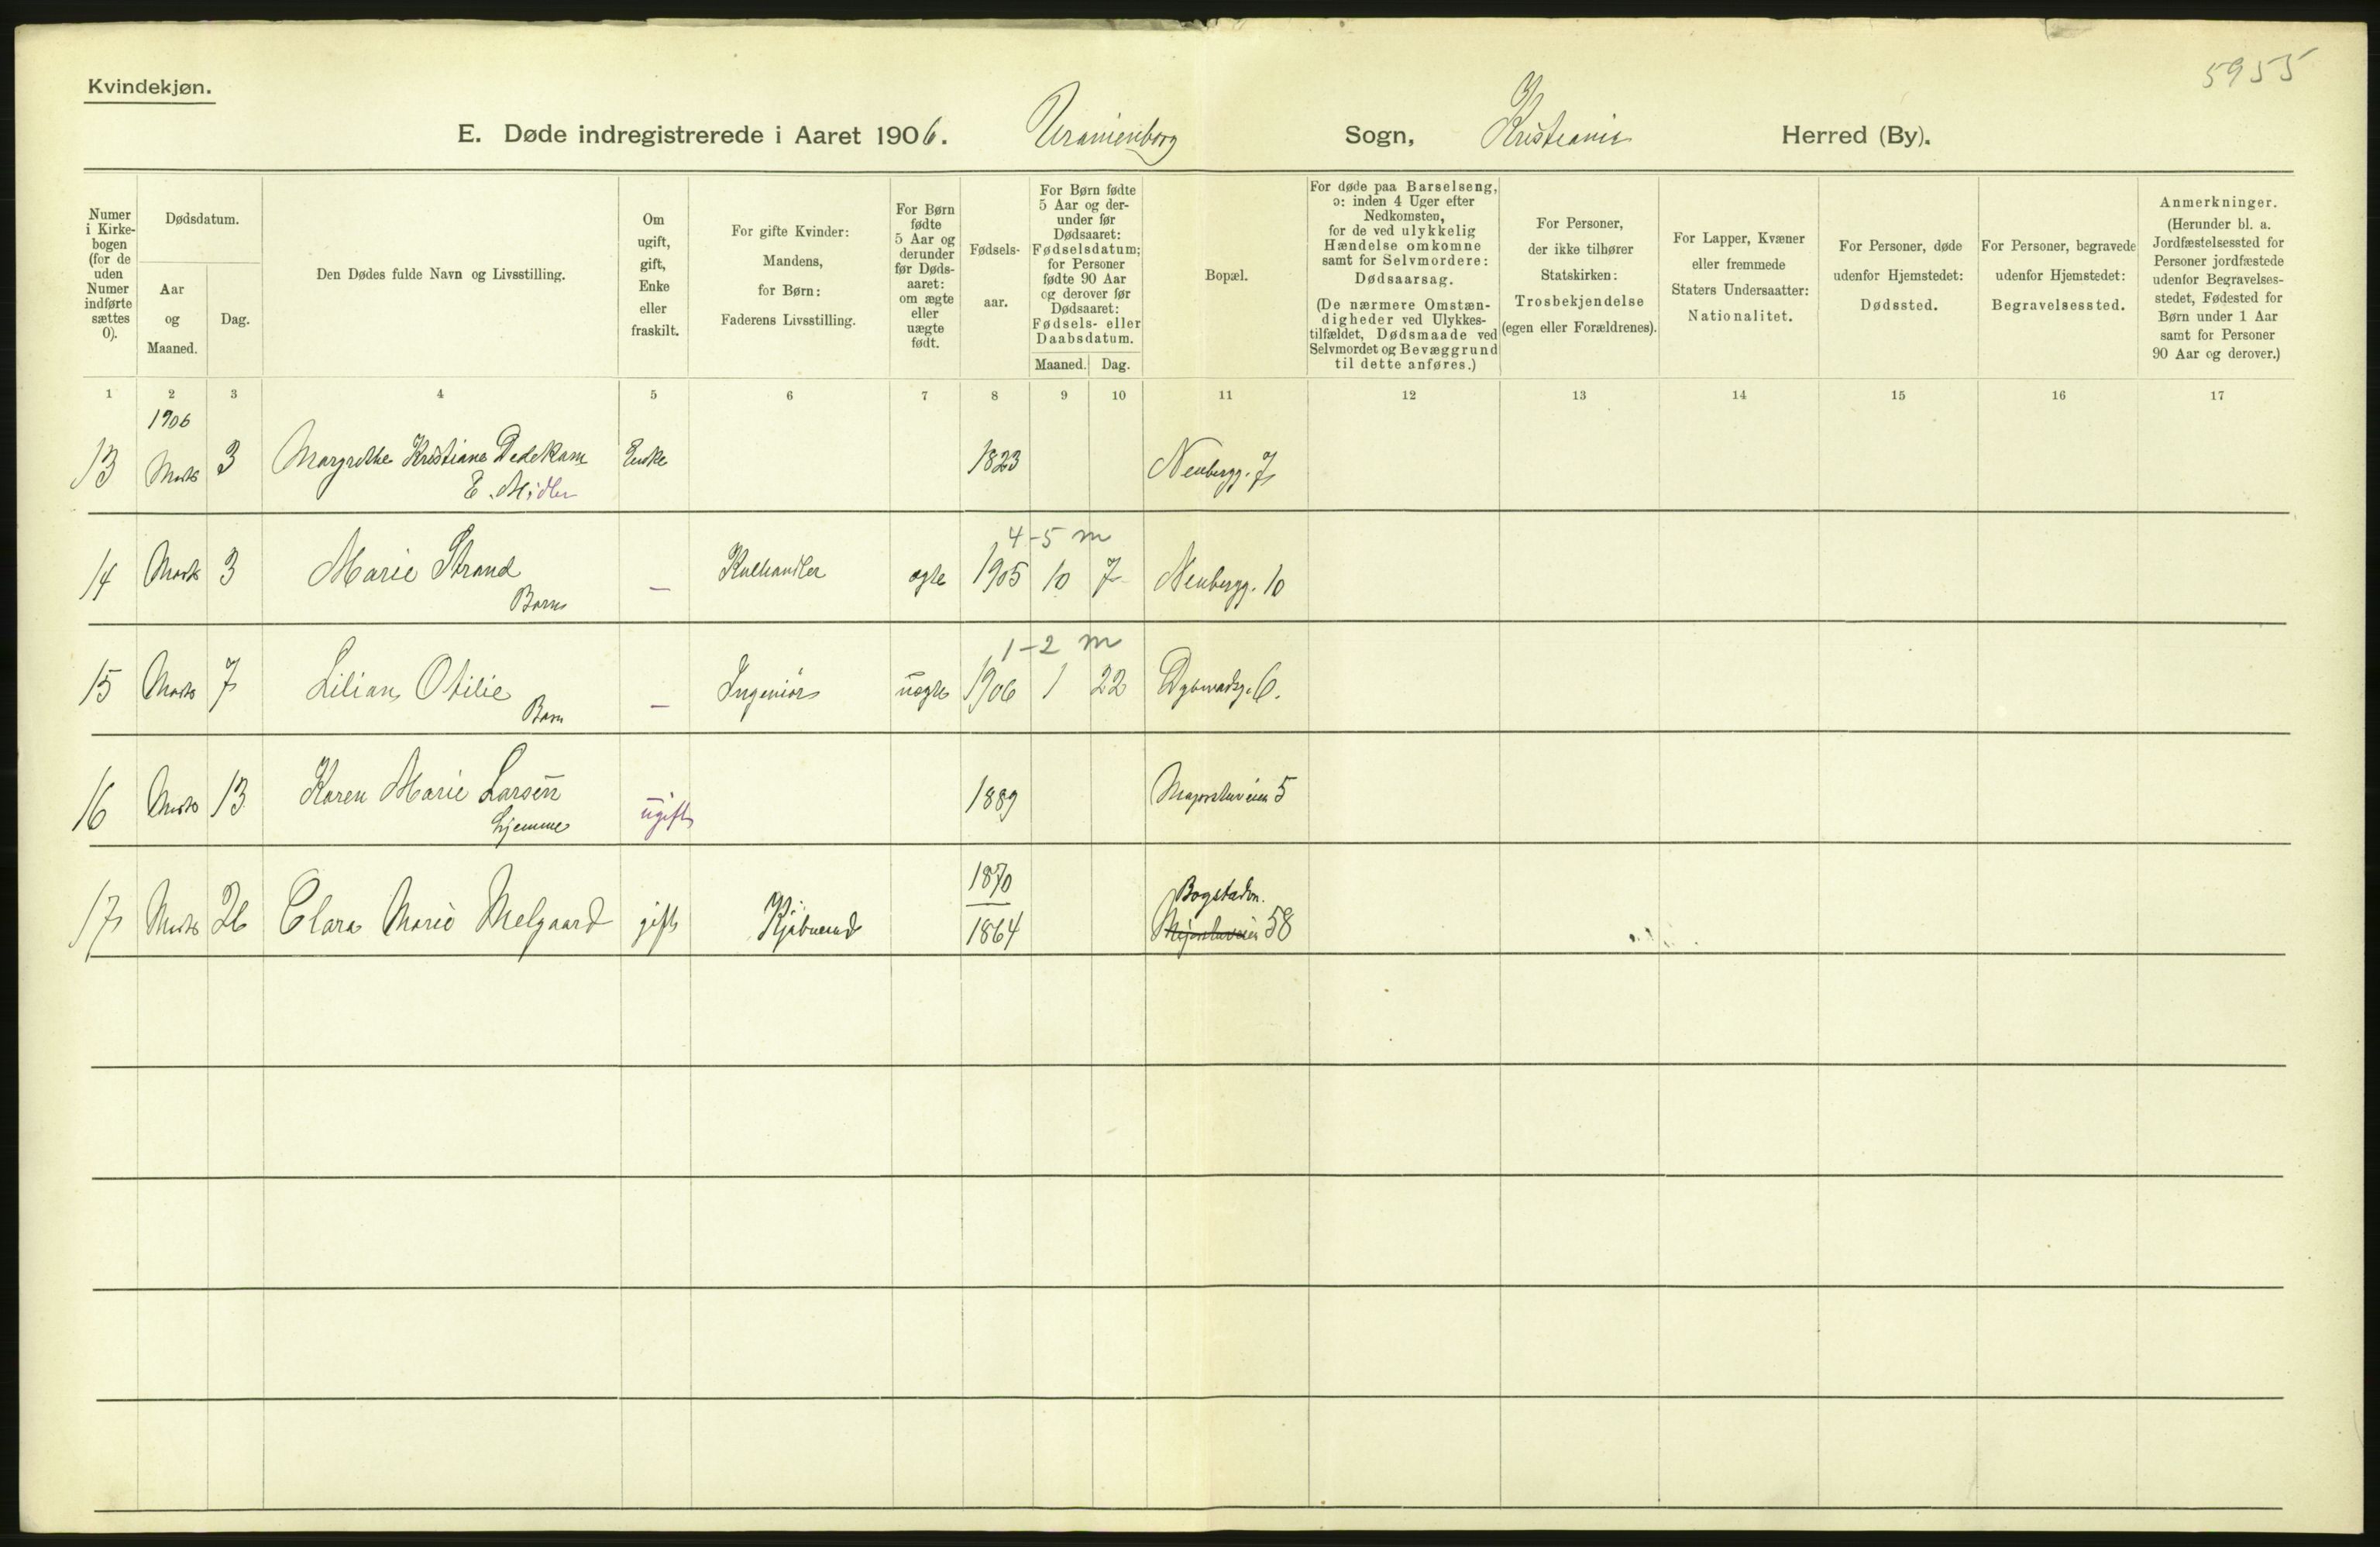 5955
Kvindekjøn.
E. Døde indregistrerede i Aaret 1906. Uranienborg Sogn, Kristiania Herred (By).
Numer i Kirke-bogen (for de uden Numer indførte sættes 0).
Dødsdatum.
Aar og Maaned.
Dag.
Den Dødes fulde Navn og Livsstilling.
Om ugift, gift, Enke eller fraskilt.
For gifte Kvinder: Mandens, for Børn: Faderens Livsstilling.
For Børn fødte 5 Aar og derunder før Døds-aaret: om ægte eller uægte født.
Fødsels-aar.
For Børn fødte 5 Aar og der-under før Dødsaaret: Fødselsdatum; for Personer fødte 90 Aar og derover før Dødsaaret: Fødsels- eller Daabsdatum.
Maaned. Dag.
Bopæl.
For døde paa Barselseng, ɔ: inden 4 Uger efter Nedkomsten, for de ved ulykkelig Hændelse omkomne samt for Selvmordere: Dødsaarsag. (De nærmere Omstæn-digheder ved Ulykkes-tilfældet, Dødsmaade ved Selvmordet og Bevæggrund til dette anføres.)
For Personer, der ikke tilhører Statskirken: Trosbekjendelse (egen eller Forældrenes).
For Lapper, Kvæner eller fremmede Staters Undersaatter: Nationalitet.
For Personer, døde udenfor Hjemstedet: Dødssted.
For Personer, begravede udenfor Hjemstedet: Begravelsessted.
Anmerkninger. (Herunder bl. a. Jordfæstelsessted for Personer jordfæstede udenfor Begravelses-stedet, Fødested for Børn under 1 Aar samt for Personer 90 Aar og derover.)
1 2 3 4 5 6 7 8 9 10 11 12 13 14 15 16 17
1906
13 Marts 3 Margrethe Kristiane Dedekam Enke 1823 Neubergg. 7
E. Midler
4-5 m
14 Marts 3 Marie Strand — Kulhandler ægte 1905 10 7 Neubergg. 10
Barn
1-2 m
15 Marts 7 Lilian Otilie — Ingeniør uægte 1906 1 22 Dybwadsg. 6.
Barn
16 Marts 13 Karen Marie Larsen ugift 1889 Majorstuveien 5
hjemme
1870 Bogstadv.
17 Marts 26 Clara Marie Melgaard gift Kjøbmand 1864 Majorstuveien 58